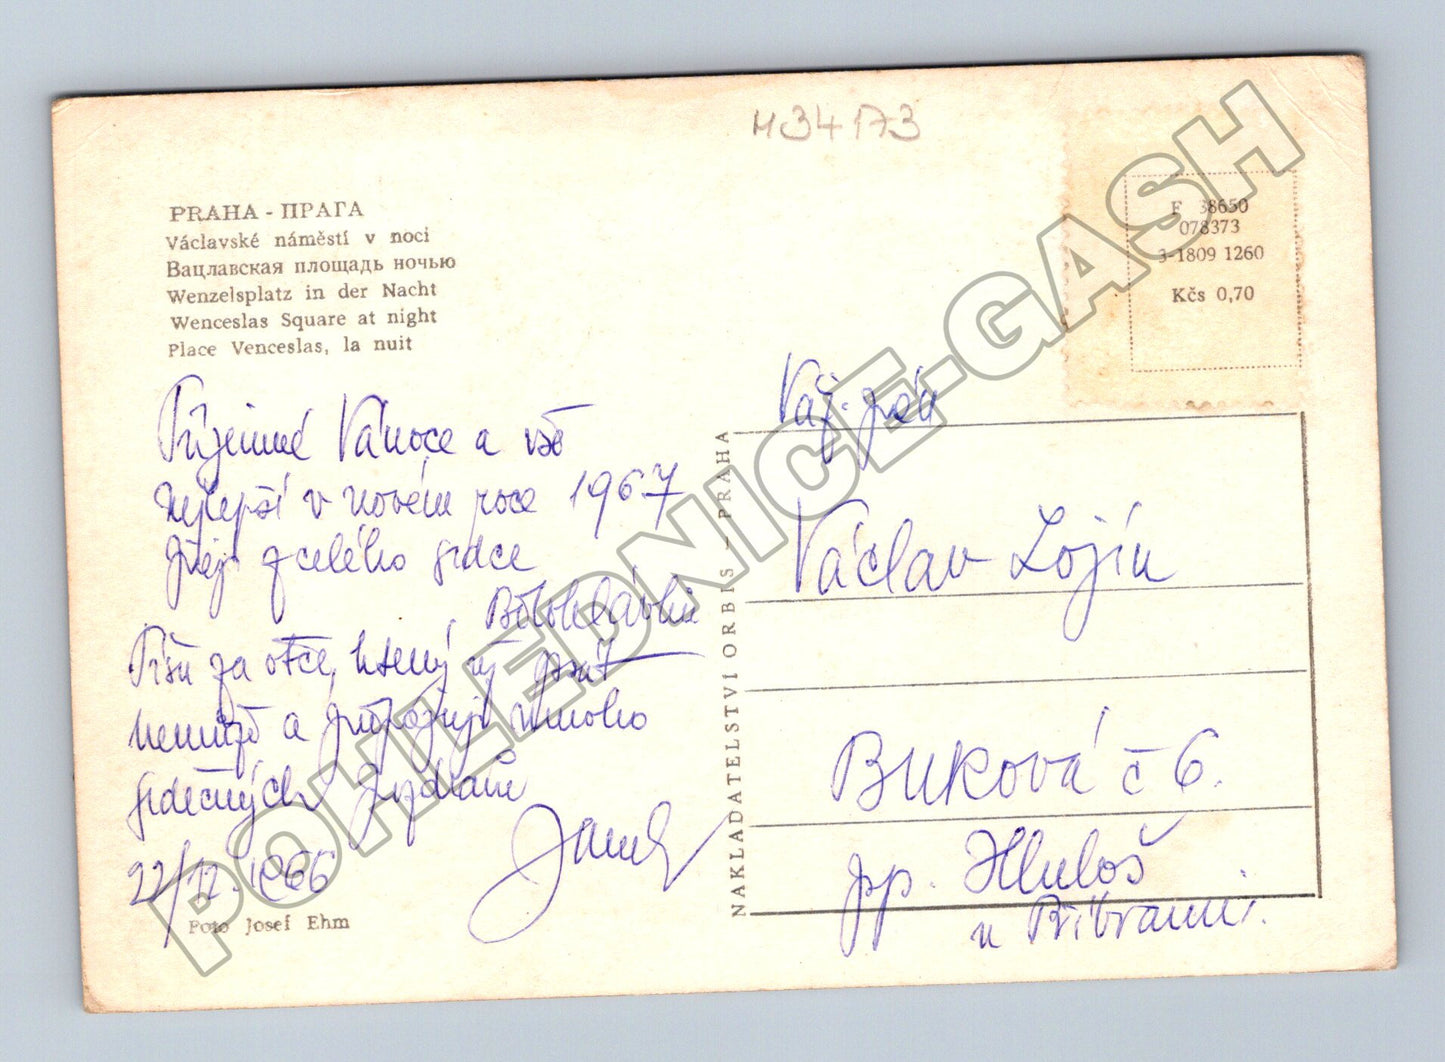 M34173
PRAHA - ПРАГА
Václavské náměstí v noci
Вацлавская площадь ночью
Wenzelsplatz in der Nacht
Wenceslas Square at night
Place Venceslas, la nuit
F 38650
078373
3-1809 1260
Kčs 0,70
Příjemné Vánoce a vše
nejlepší v novém roce 1967
přeji z celého srdce
Píšu za otce, který už psát
nemůže a připojuji mnoho
srdečných pozdravů
22/12. 1966
Foto Josef Ehm
NAKLADATELSTVÍ ORBIS - PRAHA
Váž. pán
Václav Lojín
Buková č 6.
pp. Hluboš
u Příbrami.
POHLEDNICE-GASH